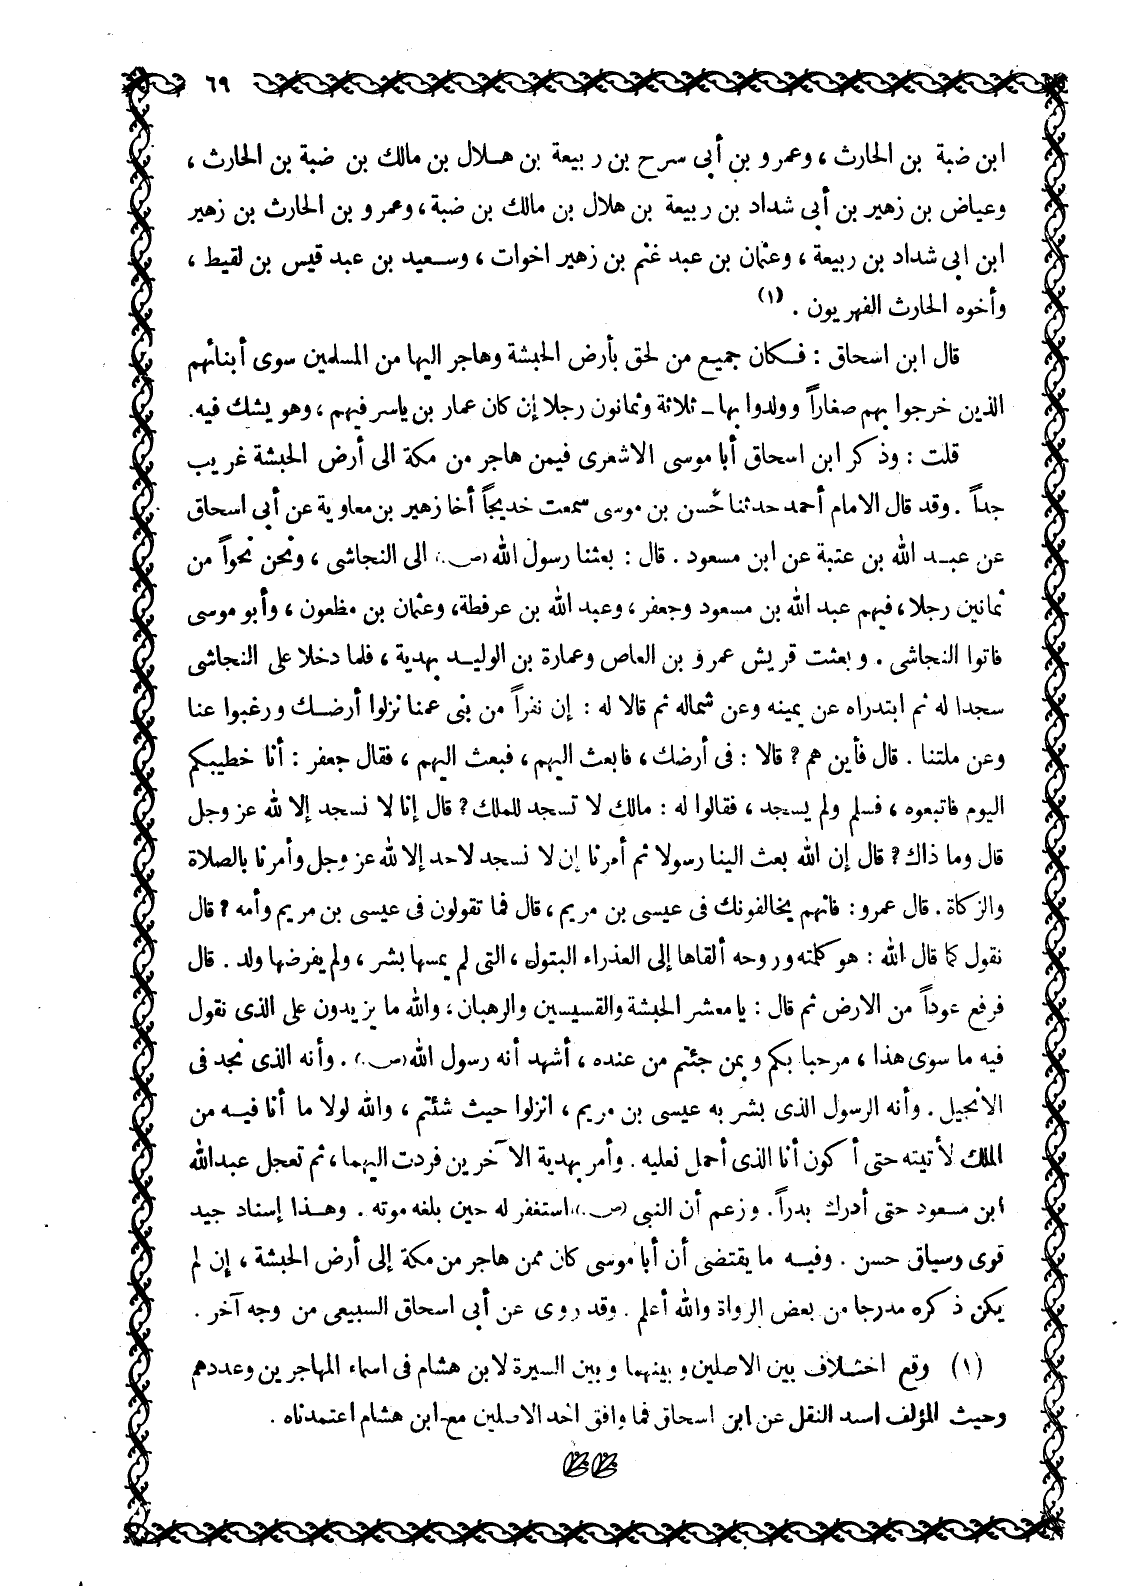 ٦٩
ابن ضبة بن الحارث، وعمرو بن أبى سرح بن ربيعة بن هلال بن مالك بن ضبة بن الحارث،
وعياض بن زهير بن أبى شداد بن ربيعة بن هلال بن مالك بن ضبة، وعمرو بن الحارث بن زهير
ابن ابى شداد بن ربيعة، وعثمان بن عبد غنم بن زهير اخوات، وسعيد بن عبد قيس بن لقيط،
وأخوه الحارث الفهريون. (١)
قال ابن اسحاق: فكان جميع من لحق بأرض الحبشة وهاجر اليها من المسلمين سوى أبنائهم
الذين خرجوا بهم صغاراً وولدوا بها ـ ثلاثة وثمانون رجلا إن كان عمار بن ياسر فيهم، وهو يشك فيه.
قلت: وذكر ابن اسحاق أبا موسى الاشعرى فيمن هاجر من مكة الى أرض الحبشة غريب
جداً. وقد قال الامام أحمد حدثنا حُسن بن موسى سمعت خديجاً أخا زهير بن معاوية عن أبى اسحاق
عن عبد الله بن عتبة عن ابن مسعود. قال: بعثنا رسول الله (ص.) الى النجاشى، ونحن نحواً من
ثمانين رجلا، فيهم عبد الله بن مسعود وجعفر، وعبد الله بن عرفطة، وعثمان بن مظعون، وأبو موسى
فاتوا النجاشى. وبعثت قريش عمرو بن العاص وعمارة بن الوليد بهدية، فلما دخلا على النجاشى
سجدا له ثم ابتدراه عن يمينه وعن شماله ثم قالا له: إن نفراً من بنى عمنا نزلوا أرضك ورغبوا عنا
وعن ملتنا. قال فأين هم؟ قالا: فى أرضك، فابعث اليهم، فبعث اليهم، فقال جعفر: أنا خطيبكم
اليوم فاتبعوه، فسلم ولم يسجد، فقالوا له: مالك لا تسجد للملك؟ قال إنا لا نسجد إلا لله عز وجل
قال وما ذاك؟ قال إن الله بعث الينا رسولا ثم أمرنا إن لا نسجد لاحد إلا لله عز وجل وأمرنا بالصلاة
والزكاة. قال عمرو: فانهم يخالفونك فى عيسى بن مريم، قال فما تقولون فى عيسى بن مريم وأمه؟ قال
نقول كما قال الله: هو كلمته وروحه ألقاها إلى العذراء البتول، التى لم يمسها بشر، ولم يفرضها ولد. قال
فرفع عوداً من الارض ثم قال: يا معشر الحبشة والقسيسين والرهبان، والله ما يزيدون على الذى نقول
فيه ما سوى هذا، مرحبا بكم وبمن جئتم من عنده، أشهد أنه رسول الله (ص.). وأنه الذى نجد فى
الانجيل. وأنه الرسول الذى بشر به عيسى بن مريم، انزلوا حيث شئتم، والله لولا ما أنا فيه من
الملك لأتيته حتى أكون أنا الذى أحمل نعليه. وأمر بهدية الآخرين فردت اليهما، ثم تعجل عبد الله
ابن مسعود حتى أدرك بدراً. وزعم أن النبى (ص.) استغفر له حين بلغه موته. وهذا إسناد جيد
قوى وسياق حسن. وفيه ما يقتضى أن أبا موسى كان ممن هاجر من مكة إلى أرض الحبشة، إن لم
يكن ذكره مدرجا من بعض الرواة والله أعلم. وقد روى عن أبى اسحاق السبيعى من وجه آخر.
(١) وقع اختلاف بين الاصلين وبينهما وبين السيرة لابن هشام فى اسماء المهاجرين وعددهم
وحيث المؤلف اسند النقل عن ابن اسحاق فما وافق احد الاصلين مع ابن هشام اعتمدناه.